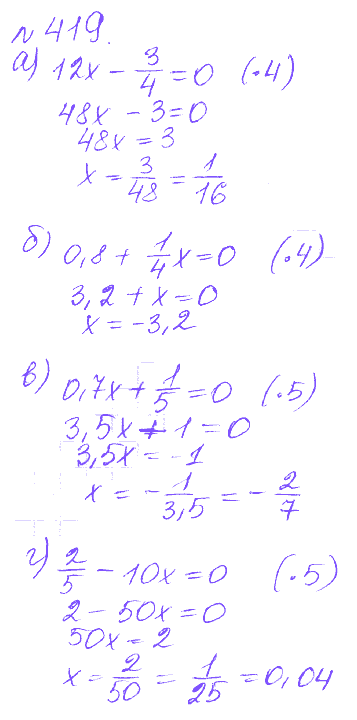 № 419.
а) 12x - 3/4 = 0 (·4)
48x - 3 = 0
48x = 3
x = 3/48 = 1/16
б) 0,8 + 1/4x = 0 (·4)
3,2 + x = 0
x = -3,2
в) 0,7x + 1/5 = 0 (·5)
3,5x + 1 = 0
3,5x = -1
x = -1/3,5 = -2/7
г) 2/5 - 10x = 0 (·5)
2 - 50x = 0
50x = 2
x = 2/50 = 1/25 = 0,04